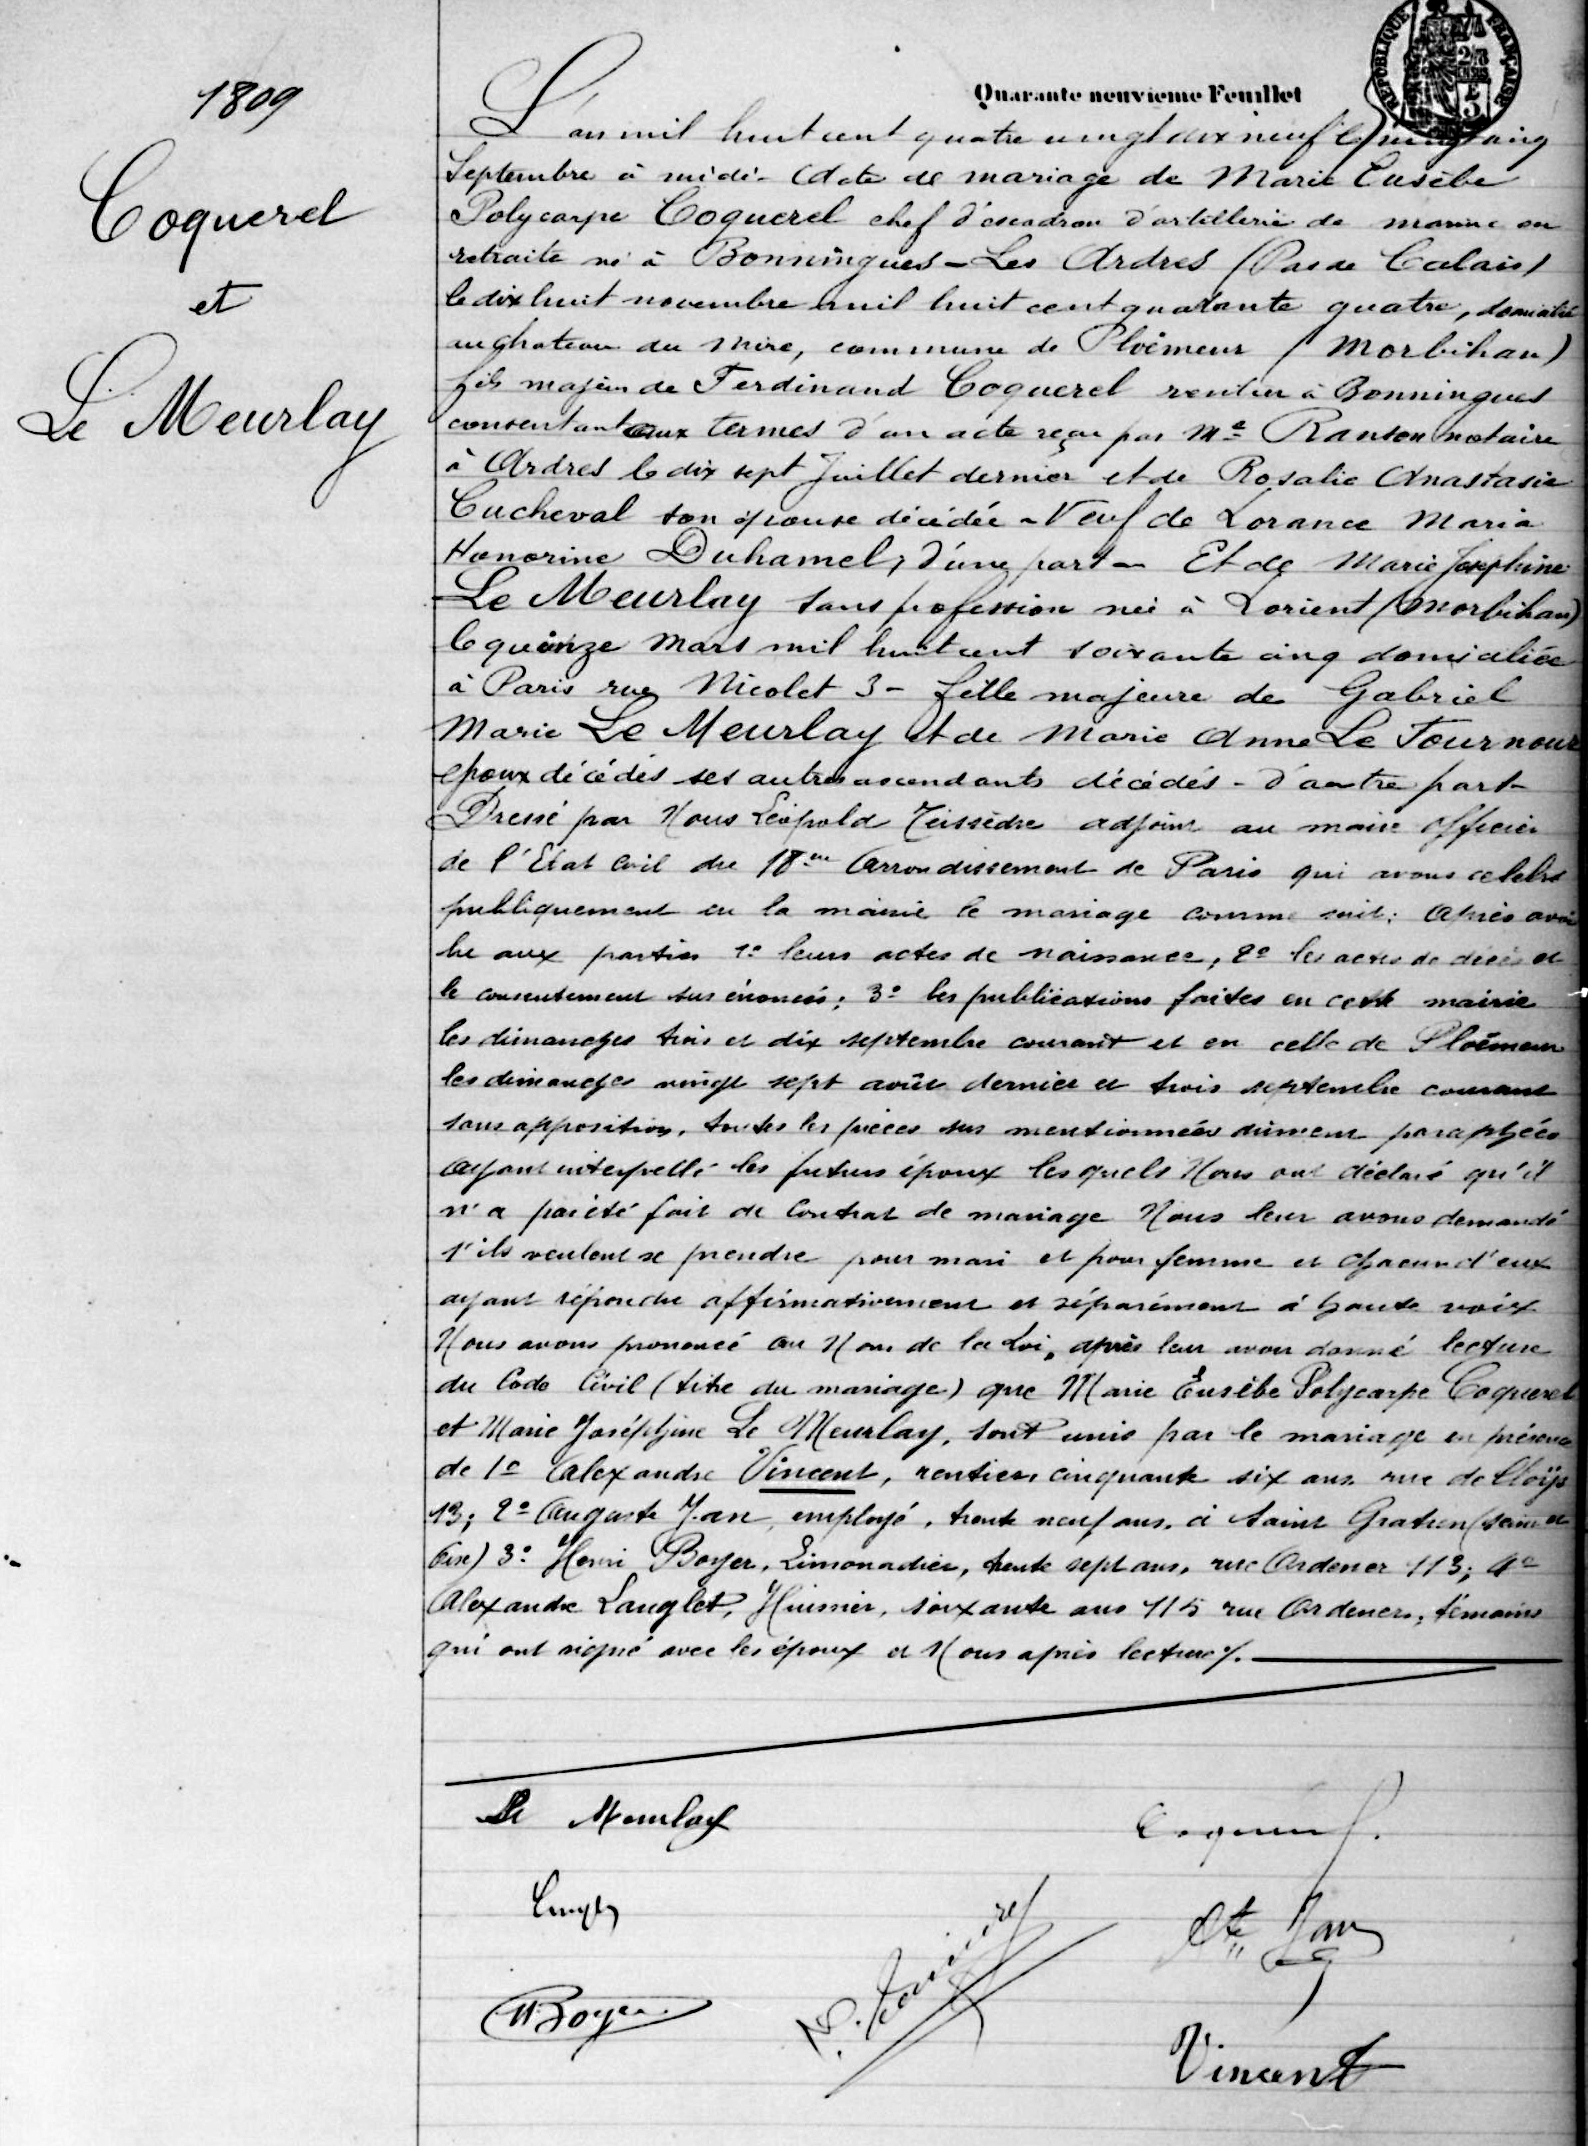 1809
Coquerel
et
Le Meurlay
Quarante neuvième Feuillet
RÉPUBLIQUE FRANÇAISE
L'an mil huit cent quatre vingt dix neuf le vingt cinq
Septembre à midi - Acte de mariage de Marie Eusèbe
Polycarpe Coquerel chef d'escadron d'artillerie de marine en
retraite né à Bonningues - Les Ardres (Pas de Calais)
le dix huit novembre mil huit cent quarante quatre, domicilié
au chateau du Mire, commune de Ploëmeur (Morbihan)
fils majeur de Ferdinand Coquerel rentier à Bonningues
consentant aux termes d'un acte reçu par Me Ranson notaire
à Ardres le dix sept Juillet dernier et de Rosalie Anastasie
Cucheval son épouse décédée - Veuf de Lorance Maria
Honorine Duhamel, d'une part - Et de Marie Joséphine
Le Meurlay sans profession née à Lorient (Morbihan)
le quinze Mars mil huit cent soixante cinq domiciliée
à Paris rue Nicolet 3 - fille majeure de Gabriel
Marie Le Meurlay et de Marie Anne Le Tournour
époux décédés ses autres ascendants décédés - d'autre part -
Dressé par Nous Léopold Teissèdre adjoint au maire officier
de l'Etat Civil du 18me Arrondissement de Paris qui avons célébré
publiquement en la mairie le mariage comme suit : Après avoir
lu aux parties 1º leurs actes de naissance, 2º les actes de décès et
le consentement sus énoncés ; 3º les publications faites en cette mairie
les dimanches trois et dix septembre courant et en celle de Ploëmeur
les dimanches vingt sept août dernier et trois septembre courant
sans opposition, toutes les pièces sus mentionnées dûment paraphées
Ayant interpellé les futurs époux lesquels Nous ont déclaré qu'il
n'a pas été fait de Contrat de mariage Nous leur avons demandé
s'ils veulent se prendre pour mari et pour femme et chacun d'eux
ayant répondu affirmativement et séparément à haute voix
Nous avons prononcé au Nom de la Loi, après leur avoir donné lecture
du Code Civil (titre du mariage) que Marie Eusèbe Polycarpe Coquerel
et Marie Joséphine Le Meurlay, sont unis par le mariage en présence
de 1º Alexandre Vincent, rentier, cinquante six ans, rue de Cloÿs
13 ; 2º Auguste Jan, employé, trente neuf ans, à Saint Gratien (Seine et
Oise) 3º Henri Boyer, Limonadier, trente sept ans, rue Ordener 113 ; 4º
Alexandre Langlet, Huissier, soixante ans 115 rue Ordener, témoins
qui ont signé avec les époux et Nous après lecture /.
Le Meurlay
Coquerel
Langlet
Ate Jan
HBoyer
Vincent